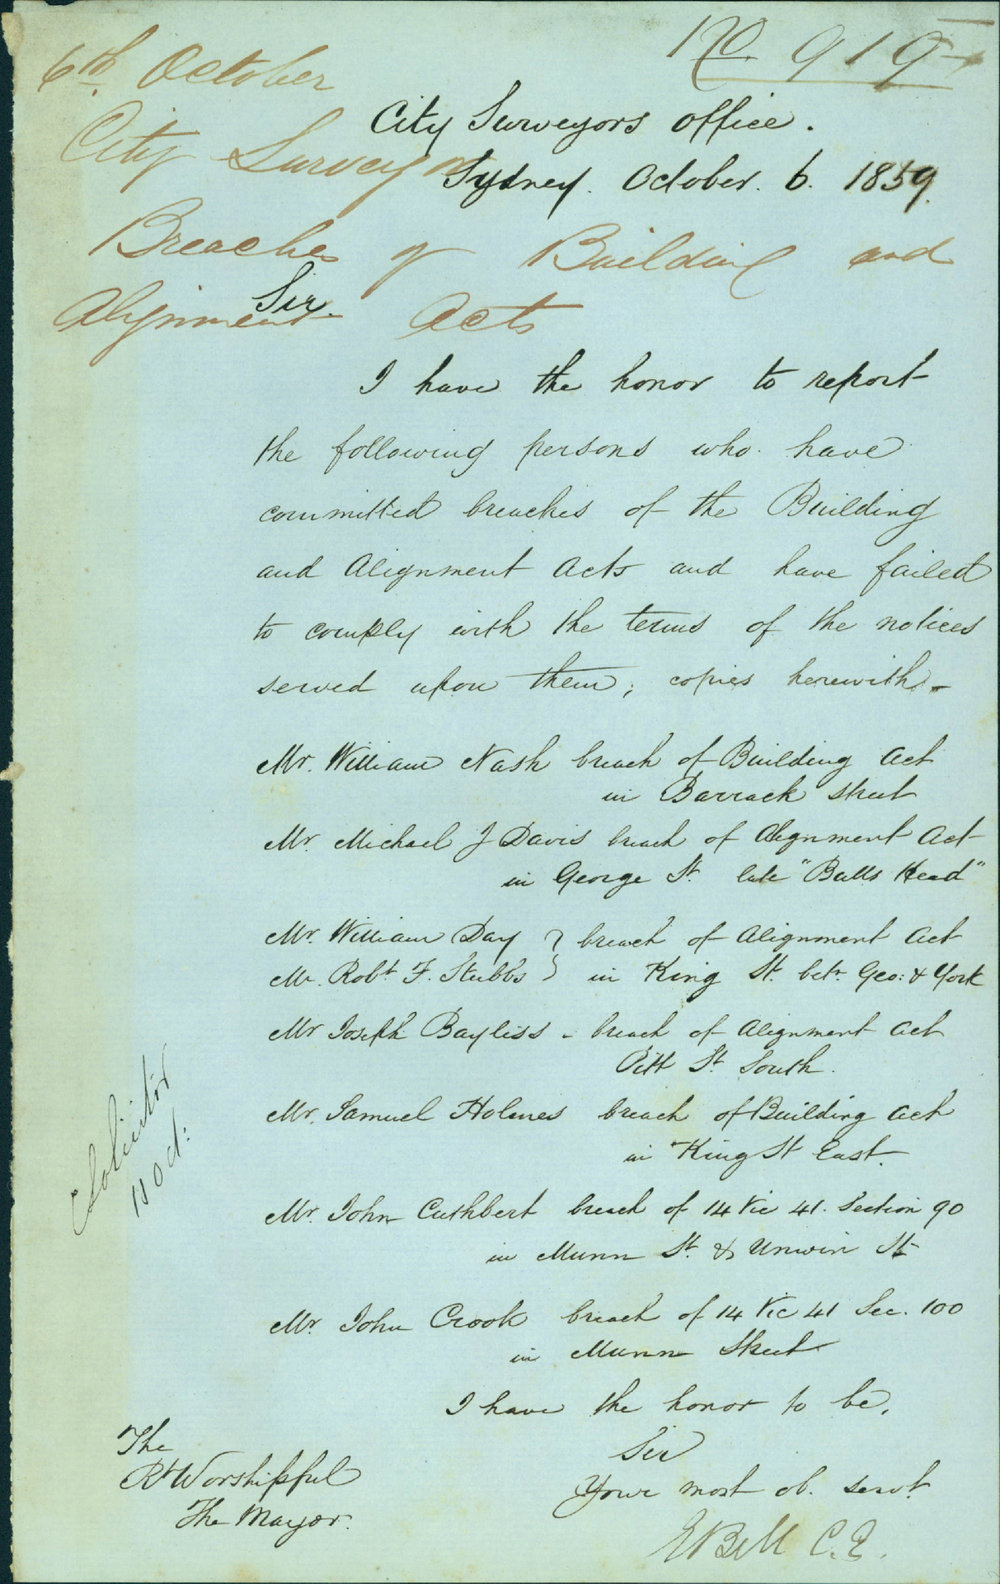 No. 919
6th. October
City Surveyor
Breaches of Building and
Alignment Acts
City Surveyors Office.
Sydney. October. 6. 1859.
Sir.
I have the honor to report
the following persons who have
committed breaches of the Building
and Alignment Acts and have failed
to comply with the terms of the notices
served upon them; copies herewith.-
Mr. William Nash breach of Building Act
in Barrack Street
Mr. Michael J Davis breach of Alignment Act
in George St. late "Bulls Head"
Mr. William Day } breach of Alignment Act
Mr. Robt F. Stubbs } in King St. betn Geo: & York
Mr Joseph Bayliss - breach of Alignment Act
Pitt St South.
Mr. Samuel Holmes breach of Building Act
in King St East.
Mr. John Cuthbert breach of 14 Vic 41. Section 90
in Munn St. & Unwin St
Mr. John Crook breach of 14 Vic 41 Sec. 100
in Munn Street
I have the honor to be,
Sir
Your most ob. servt.
EBell C.E.
The
Rt Worshipful
The Mayor.
Solicitor
11 Oct: